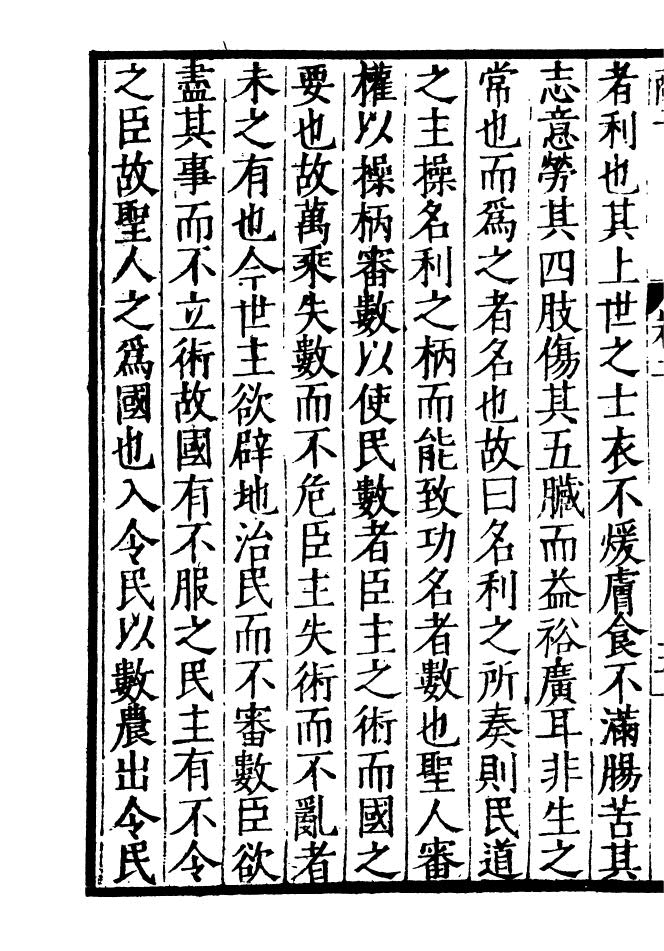 者利也其上世之士衣不煖膚食不滿腸苦其
志意勞其四肢傷其五臟而益裕廣耳非生之
常也而爲之者名也故曰名利之所奏則民道
之主操名利之柄而能致功名者數也聖人審
權以操柄審數以使民數者臣主之術而國之
要也故萬乘失數而不危臣主失術而不亂者
未之有也今世主欲辟地治民而不審數臣欲
盡其事而不立術故國有不服之民主有不令
之臣故聖人之爲國也入令民以數農出令民